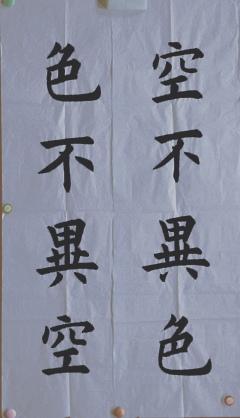 空不異色
色不異空